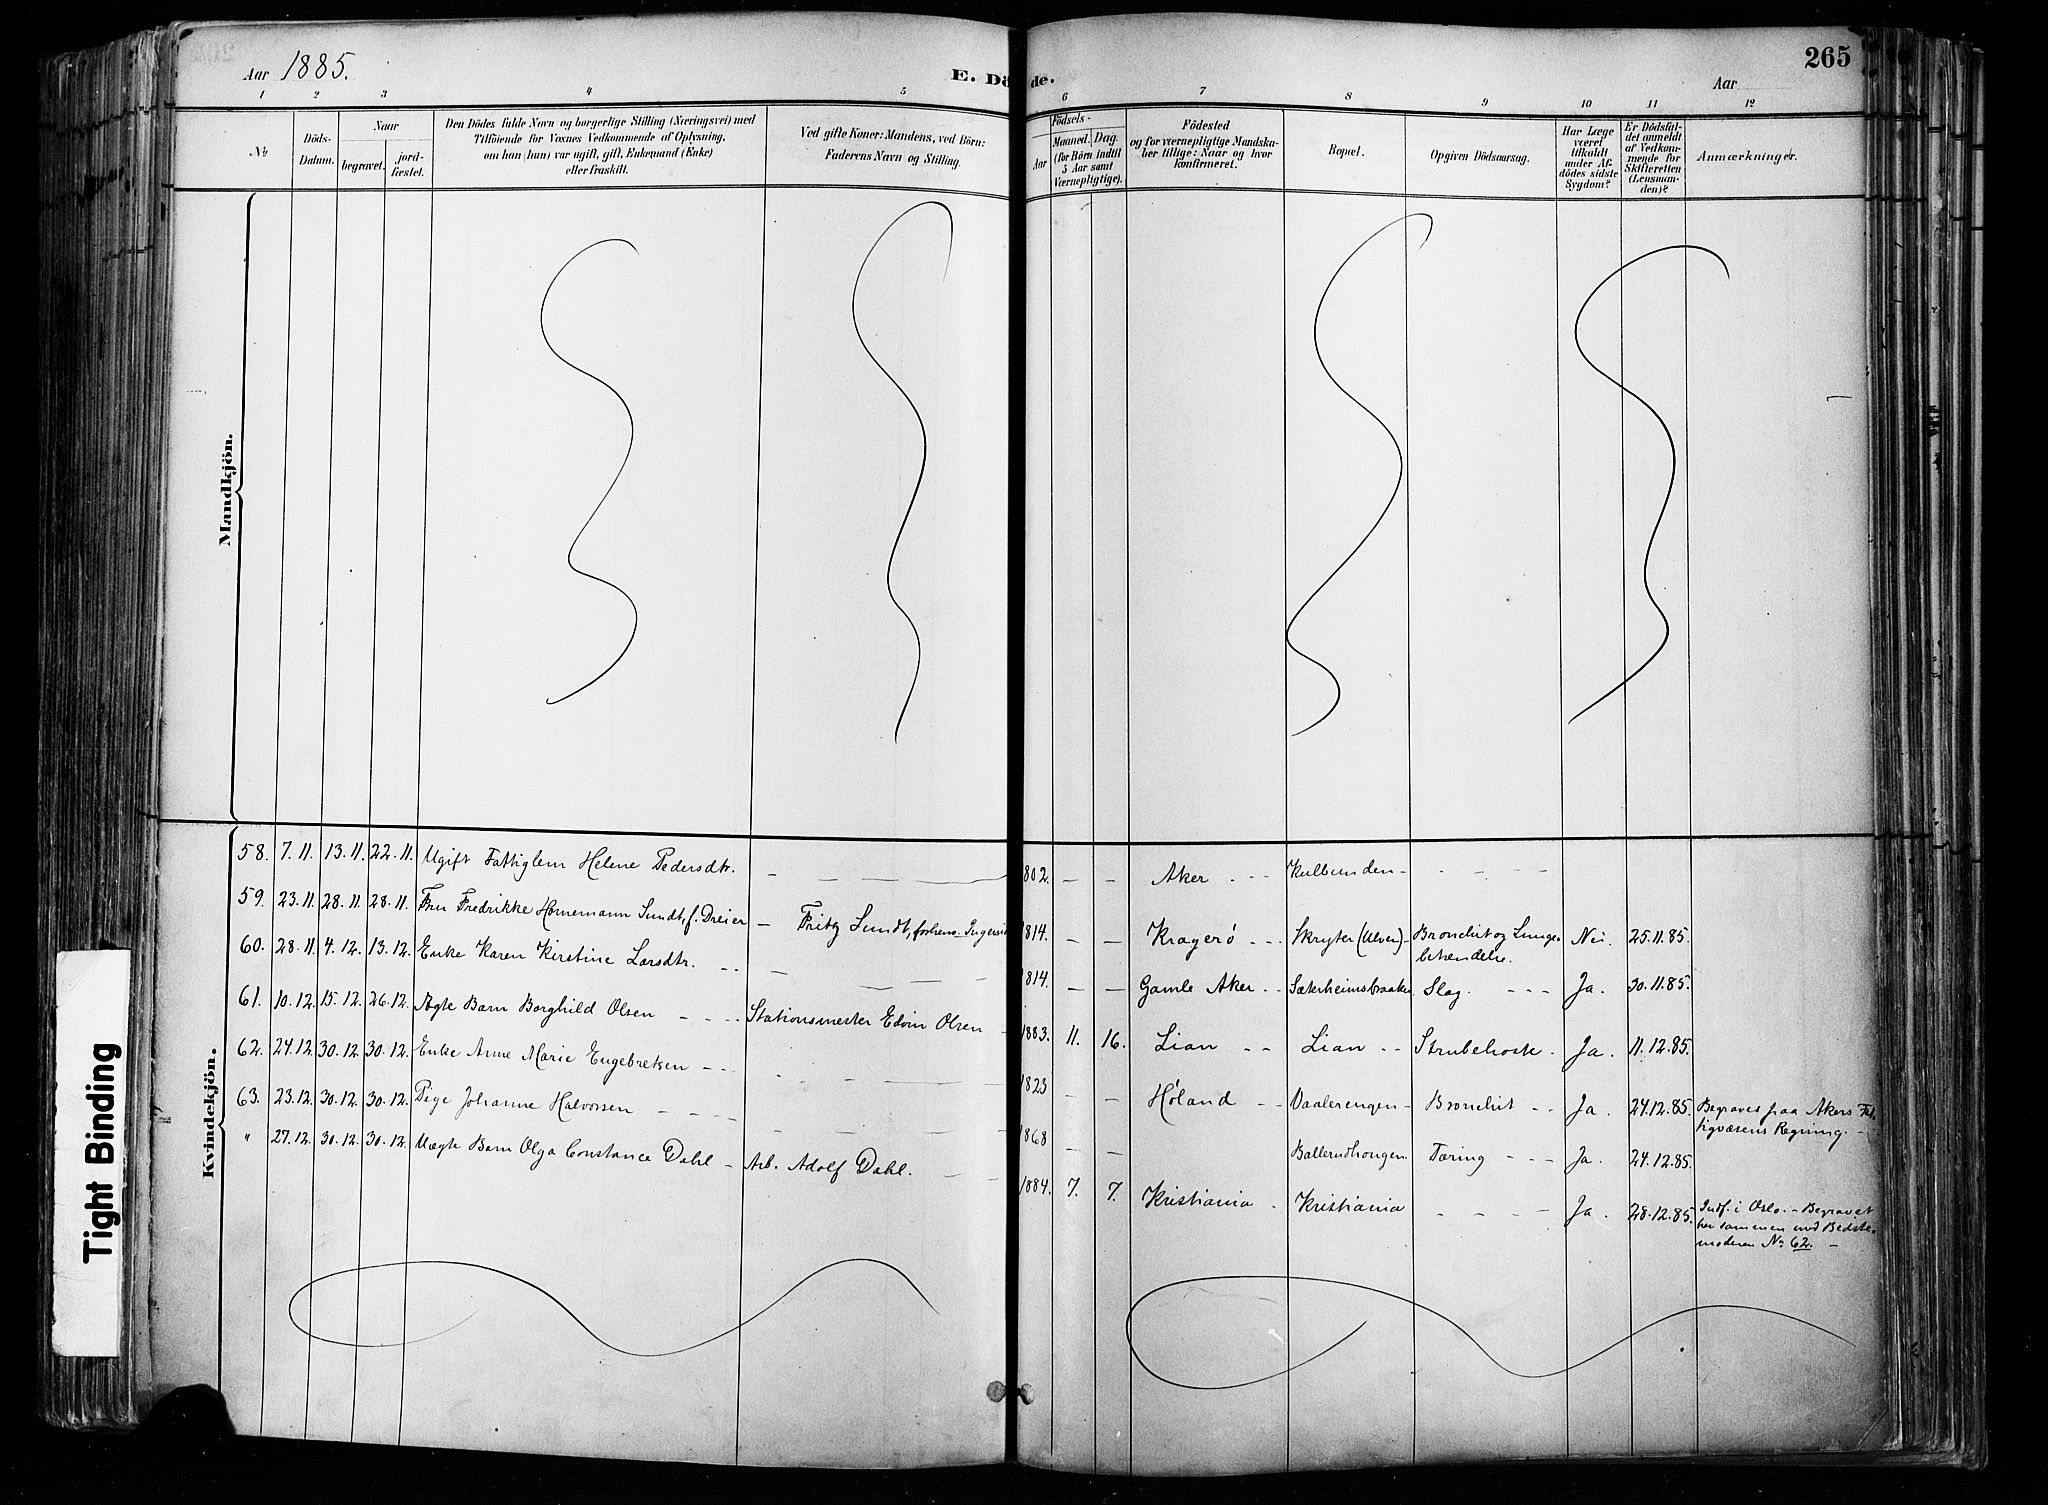 Aar 1885.
E. Dö de.
265
Aar
1 2 3 4 5 6 7 8 9 10 11 12
No
Döds-
Datum.
Naar
begravet.
jord-
fæstet.
Den Dödes fulde Navn og borgerlige Stilling (Næringsvei) med
Tilföiende for Voxnes Vedkommende af Oplysning,
om han (hun) var ugift, gift, Enkemand (Enke)
eller fraskilt.
Ved gifte Koner: Mandens, ved Börn:
Faderens Navn og Stilling.
Födsels-
Aar
Maaned.
Dag.
(for Börn indtil
5 Aar samt
Værnepligtige).
Födested
og for værnepligtige Mandska-
ber tillige: Naar og hvor
konfirmeret.
Bopæl.
Opgiven Dödsaarsag.
Har Læge
været
tilkaldt
under Af-
dödes sidste
Sygdom?
Er Dödsfal-
det anmeldt
af Vedkom-
mende for
Skifteretten
(Lensman-
den)?
Anmærkninger.
Mandkjön.
Kvindekjön.
58. 7.11. 13.11. 22.11. Ugift Fattiglem Helene Pedersdtr. — — — 802. — — Aker - - - Kulbunden - - - - -
59. 23.11. 28.11. 28.11. Fru Fredrikke Hornemann Sundt, f. Dreier — Fritz Sundt, 1814. — — Kragerø - - - Skryter (Ulver) - Bronchit og Lunge- Nei. 25.11.85.
betændelse.
60. 28.11. 4.12. 13.12. Enke Karen Kirstine Larsdtr. - - — — — 1814. — — Gamle Aker - - Sæterheimsbraaten Slag. - - - Ja. 30.11.85.
61. 10.12. 15.12. 26.12. Ægte Barn Borghild Olsen - - - Stationsmester Edvin Olsen - 1883. 11. 16. Lian - - Lian - - Strubehoste. Ja. 11.12.85.
62. 24.12. 30.12. 30.12. Enke Anne Marie Engebretsen - - - 1823 — — Høland - - Vaalerengen - Bronchit - - Ja. 24.12.85. Begraves paa Akers Fat-
tigvæsens Regning. -
63. 23.12. 30.12. 30.12. Pige Johanne Halvorsen - - - - 1868 — — Tæring - - - Ja. 24.12.85.
" 27.12. 30.12. 30.12. Uægte Barn Olga Constance Dahl - Arb. Adolf Dahl. — — 1884. 7. 7. Kristiania - Kristiania - - - - Ja. 28.12.85. Indf. i Oslo. - Begravet
her sammen med Bedste-
moderen No 62. -
Tight Binding